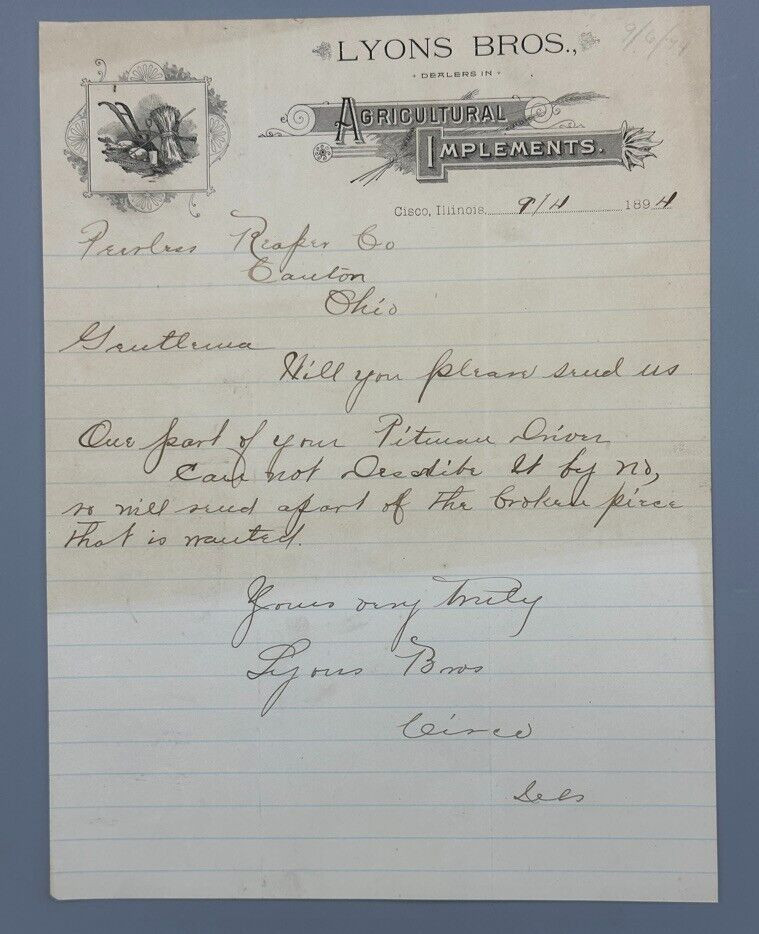 LYONS BROS.,
DEALERS IN
AGRICULTURAL
IMPLEMENTS.
Cisco, Illinois, 9/4 1894
Peerless Reaper Co
Canton
Ohio
Gentlema
Will you please send us
One part of your Pitman Driver
Can not Describe It by no,
so will send a part of the broken piece
that is wanted.
Yours very truly
Lyons Bros
Cisco